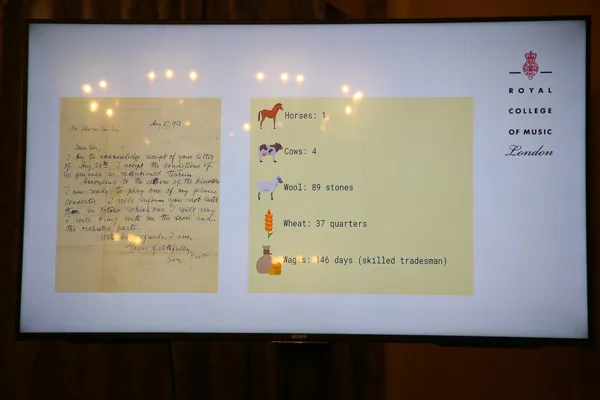 Aug 27, 1931
Dear Sir,
I beg to acknowledge receipt of your letter
of Aug. I accept the conditions of
60 guineas as mentioned therein.
According to the desire of the Directors
I am ready to play one of my piano
concertos. I will inform you not later
than in October which one I will play.
I will bring with me the score and
the orchestra parts.
With regards, I am,
Yours faithfully,
Horses: 1
Cows: 4
Wool: 89 stones
Wheat: 37 quarters
Wages: 146 days (skilled tradesman)
ROYAL
COLLEGE
OF MUSIC
London
SONY